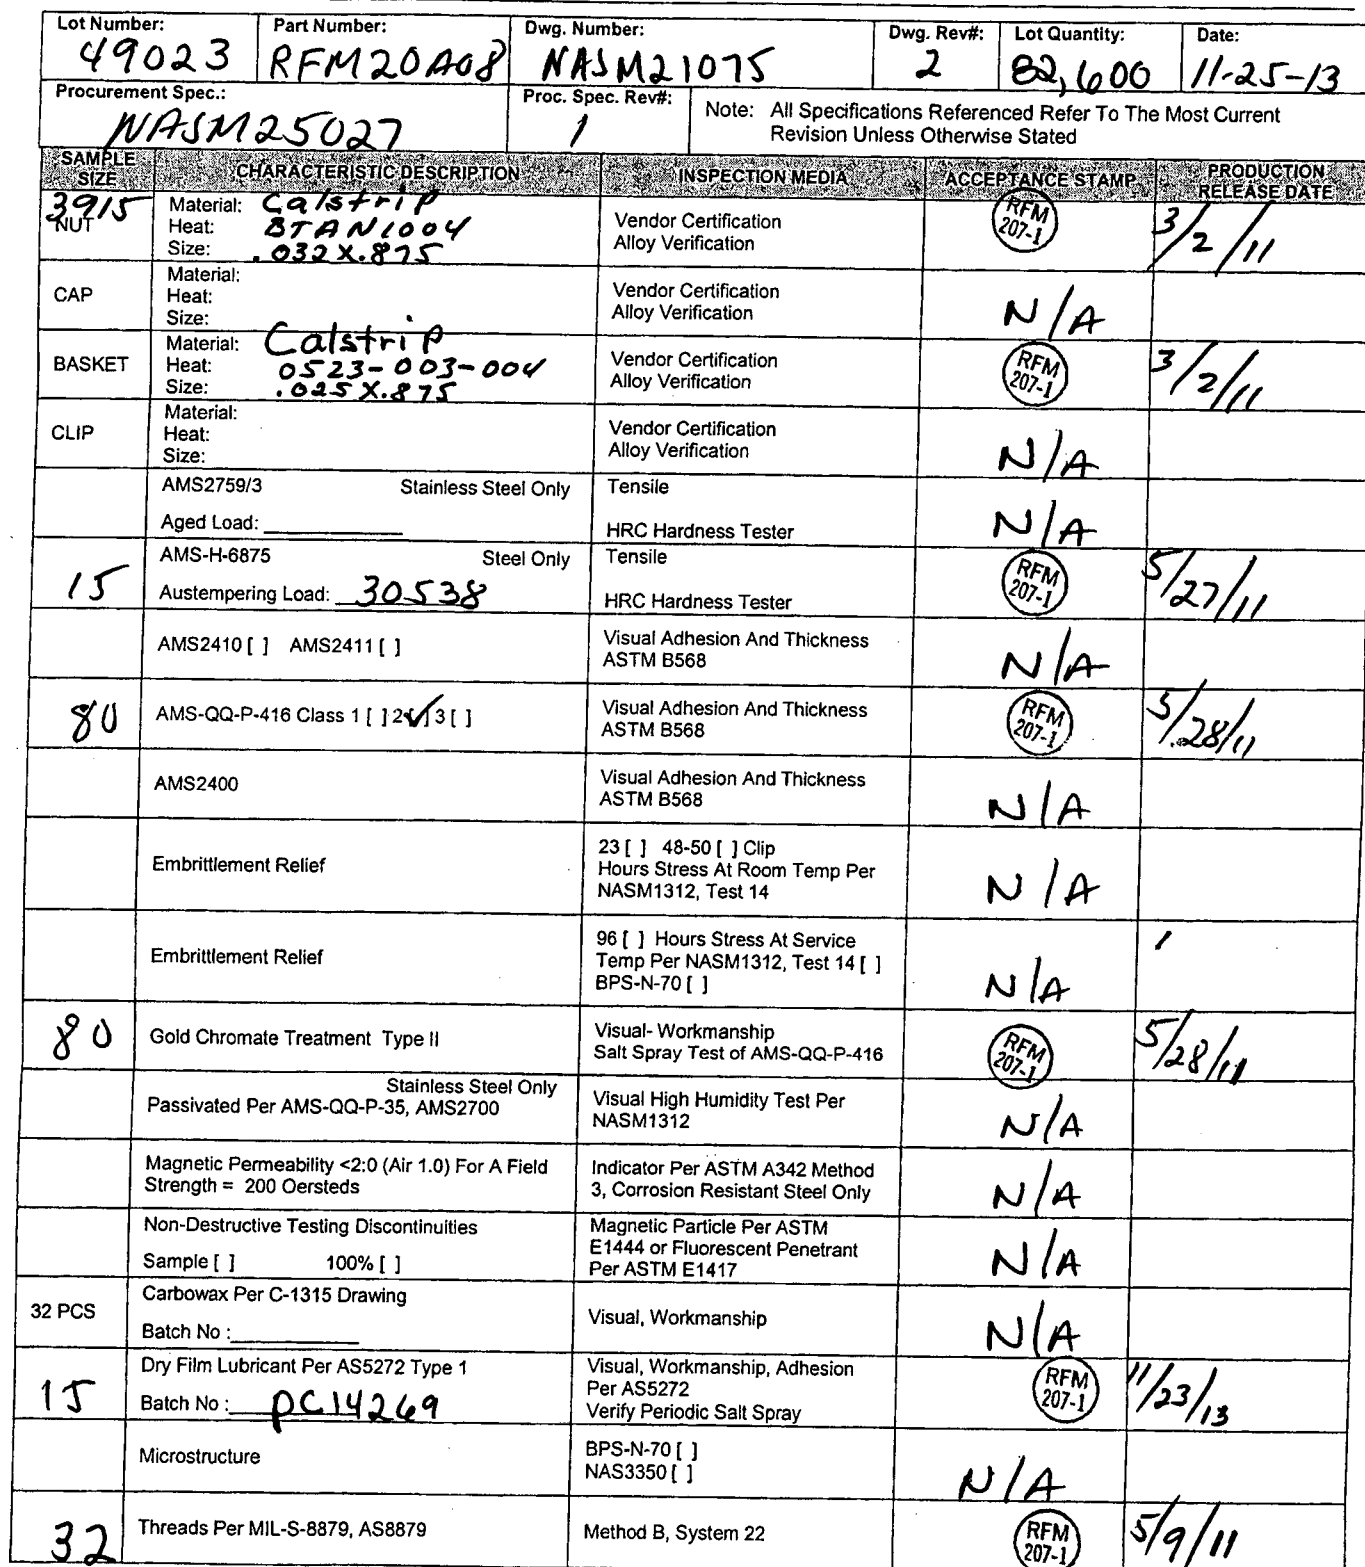 Lot Number: Part Number: Dwg. Number: Dwg. Rev#: Lot Quantity: Date:
49023 RFM20A08 NASM21075 2 82,600 11-25-13
Procurement Spec.: Proc. Spec. Rev#:
NASM25027 1
Note: All Specifications Referenced Refer To The Most Current
Revision Unless Otherwise Stated
SAMPLE SIZE CHARACTERISTIC DESCRIPTION INSPECTION MEDIA ACCEPTANCE STAMP PRODUCTION RELEASE DATE
3915
NUT
Material: Calstrip
Heat: BTAN1004
Size: .032X.875
Vendor Certification
Alloy Verification
RFM
207-1
3/2/11
CAP
Material:
Heat:
Size:
Vendor Certification
Alloy Verification
N/A
BASKET
Material: Calstrip
Heat: 0523-003-004
Size: .025X.875
Vendor Certification
Alloy Verification
RFM
207-1
3/2/11
CLIP
Material:
Heat:
Size:
Vendor Certification
Alloy Verification
N/A
AMS2759/3 Stainless Steel Only
Aged Load:
Tensile
HRC Hardness Tester
N/A
15
AMS-H-6875 Steel Only
Austempering Load: 30538
Tensile
HRC Hardness Tester
RFM
207-1
5/27/11
AMS2410 [ ] AMS2411 [ ]
Visual Adhesion And Thickness
ASTM B568
N/A
80
AMS-QQ-P-416 Class 1 [ ] 2 [✓] 3 [ ]
Visual Adhesion And Thickness
ASTM B568
RFM
207-1
5/28/11
AMS2400
Visual Adhesion And Thickness
ASTM B568
N/A
Embrittlement Relief
23 [ ] 48-50 [ ] Clip
Hours Stress At Room Temp Per
NASM1312, Test 14
N/A
Embrittlement Relief
96 [ ] Hours Stress At Service
Temp Per NASM1312, Test 14 [ ]
BPS-N-70 [ ]
N/A
80
Gold Chromate Treatment Type II
Visual- Workmanship
Salt Spray Test of AMS-QQ-P-416
RFM
207-1
5/28/11
Stainless Steel Only
Passivated Per AMS-QQ-P-35, AMS2700
Visual High Humidity Test Per
NASM1312
N/A
Magnetic Permeability <2:0 (Air 1.0) For A Field
Strength = 200 Oersteds
Indicator Per ASTM A342 Method
3, Corrosion Resistant Steel Only
N/A
Non-Destructive Testing Discontinuities
Sample [ ] 100% [ ]
Magnetic Particle Per ASTM
E1444 or Fluorescent Penetrant
Per ASTM E1417
N/A
32 PCS
Carbowax Per C-1315 Drawing
Batch No :
Visual, Workmanship
N/A
15
Dry Film Lubricant Per AS5272 Type 1
Batch No : PC14269
Visual, Workmanship, Adhesion
Per AS5272
Verify Periodic Salt Spray
RFM
207-1
11/23/13
Microstructure
BPS-N-70 [ ]
NAS3350 [ ]
N/A
32
Threads Per MIL-S-8879, AS8879
Method B, System 22
RFM
207-1
5/9/11